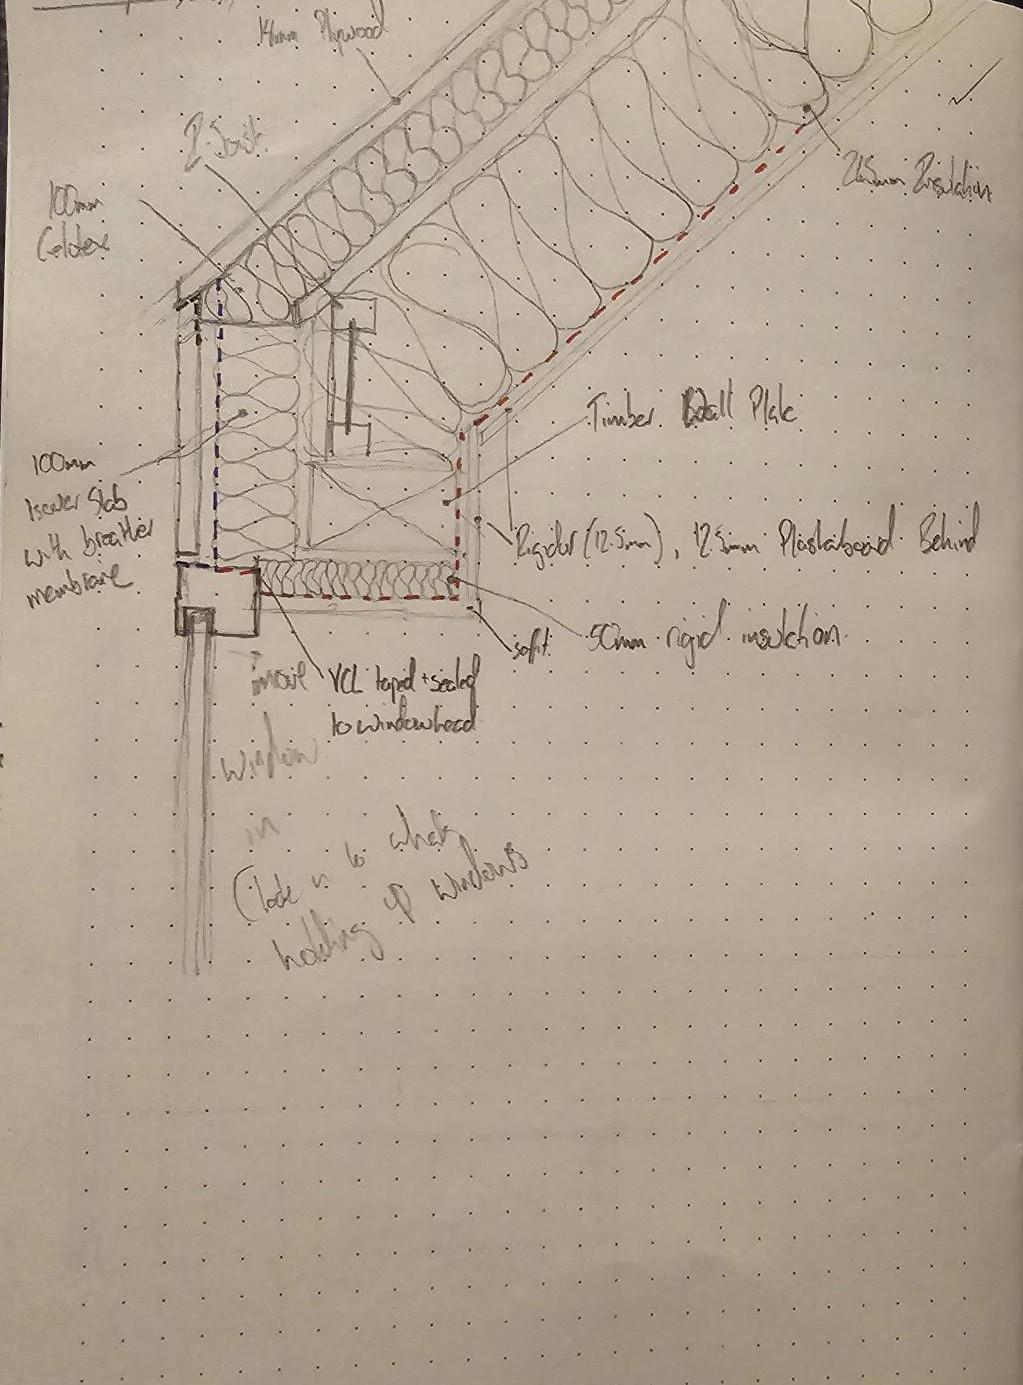 Plywood
100mm
Celotex
245mm Insulation
Timber Wall Plate
100mm
Isover Slab
with breather
membrane
Rigidur (12.5mm), 12.5mm Plasterboard Behind
sofit
50mm rigid insulation
VCL taped + sealed
to window head
move
window
in
(look in to whats
holding up windows